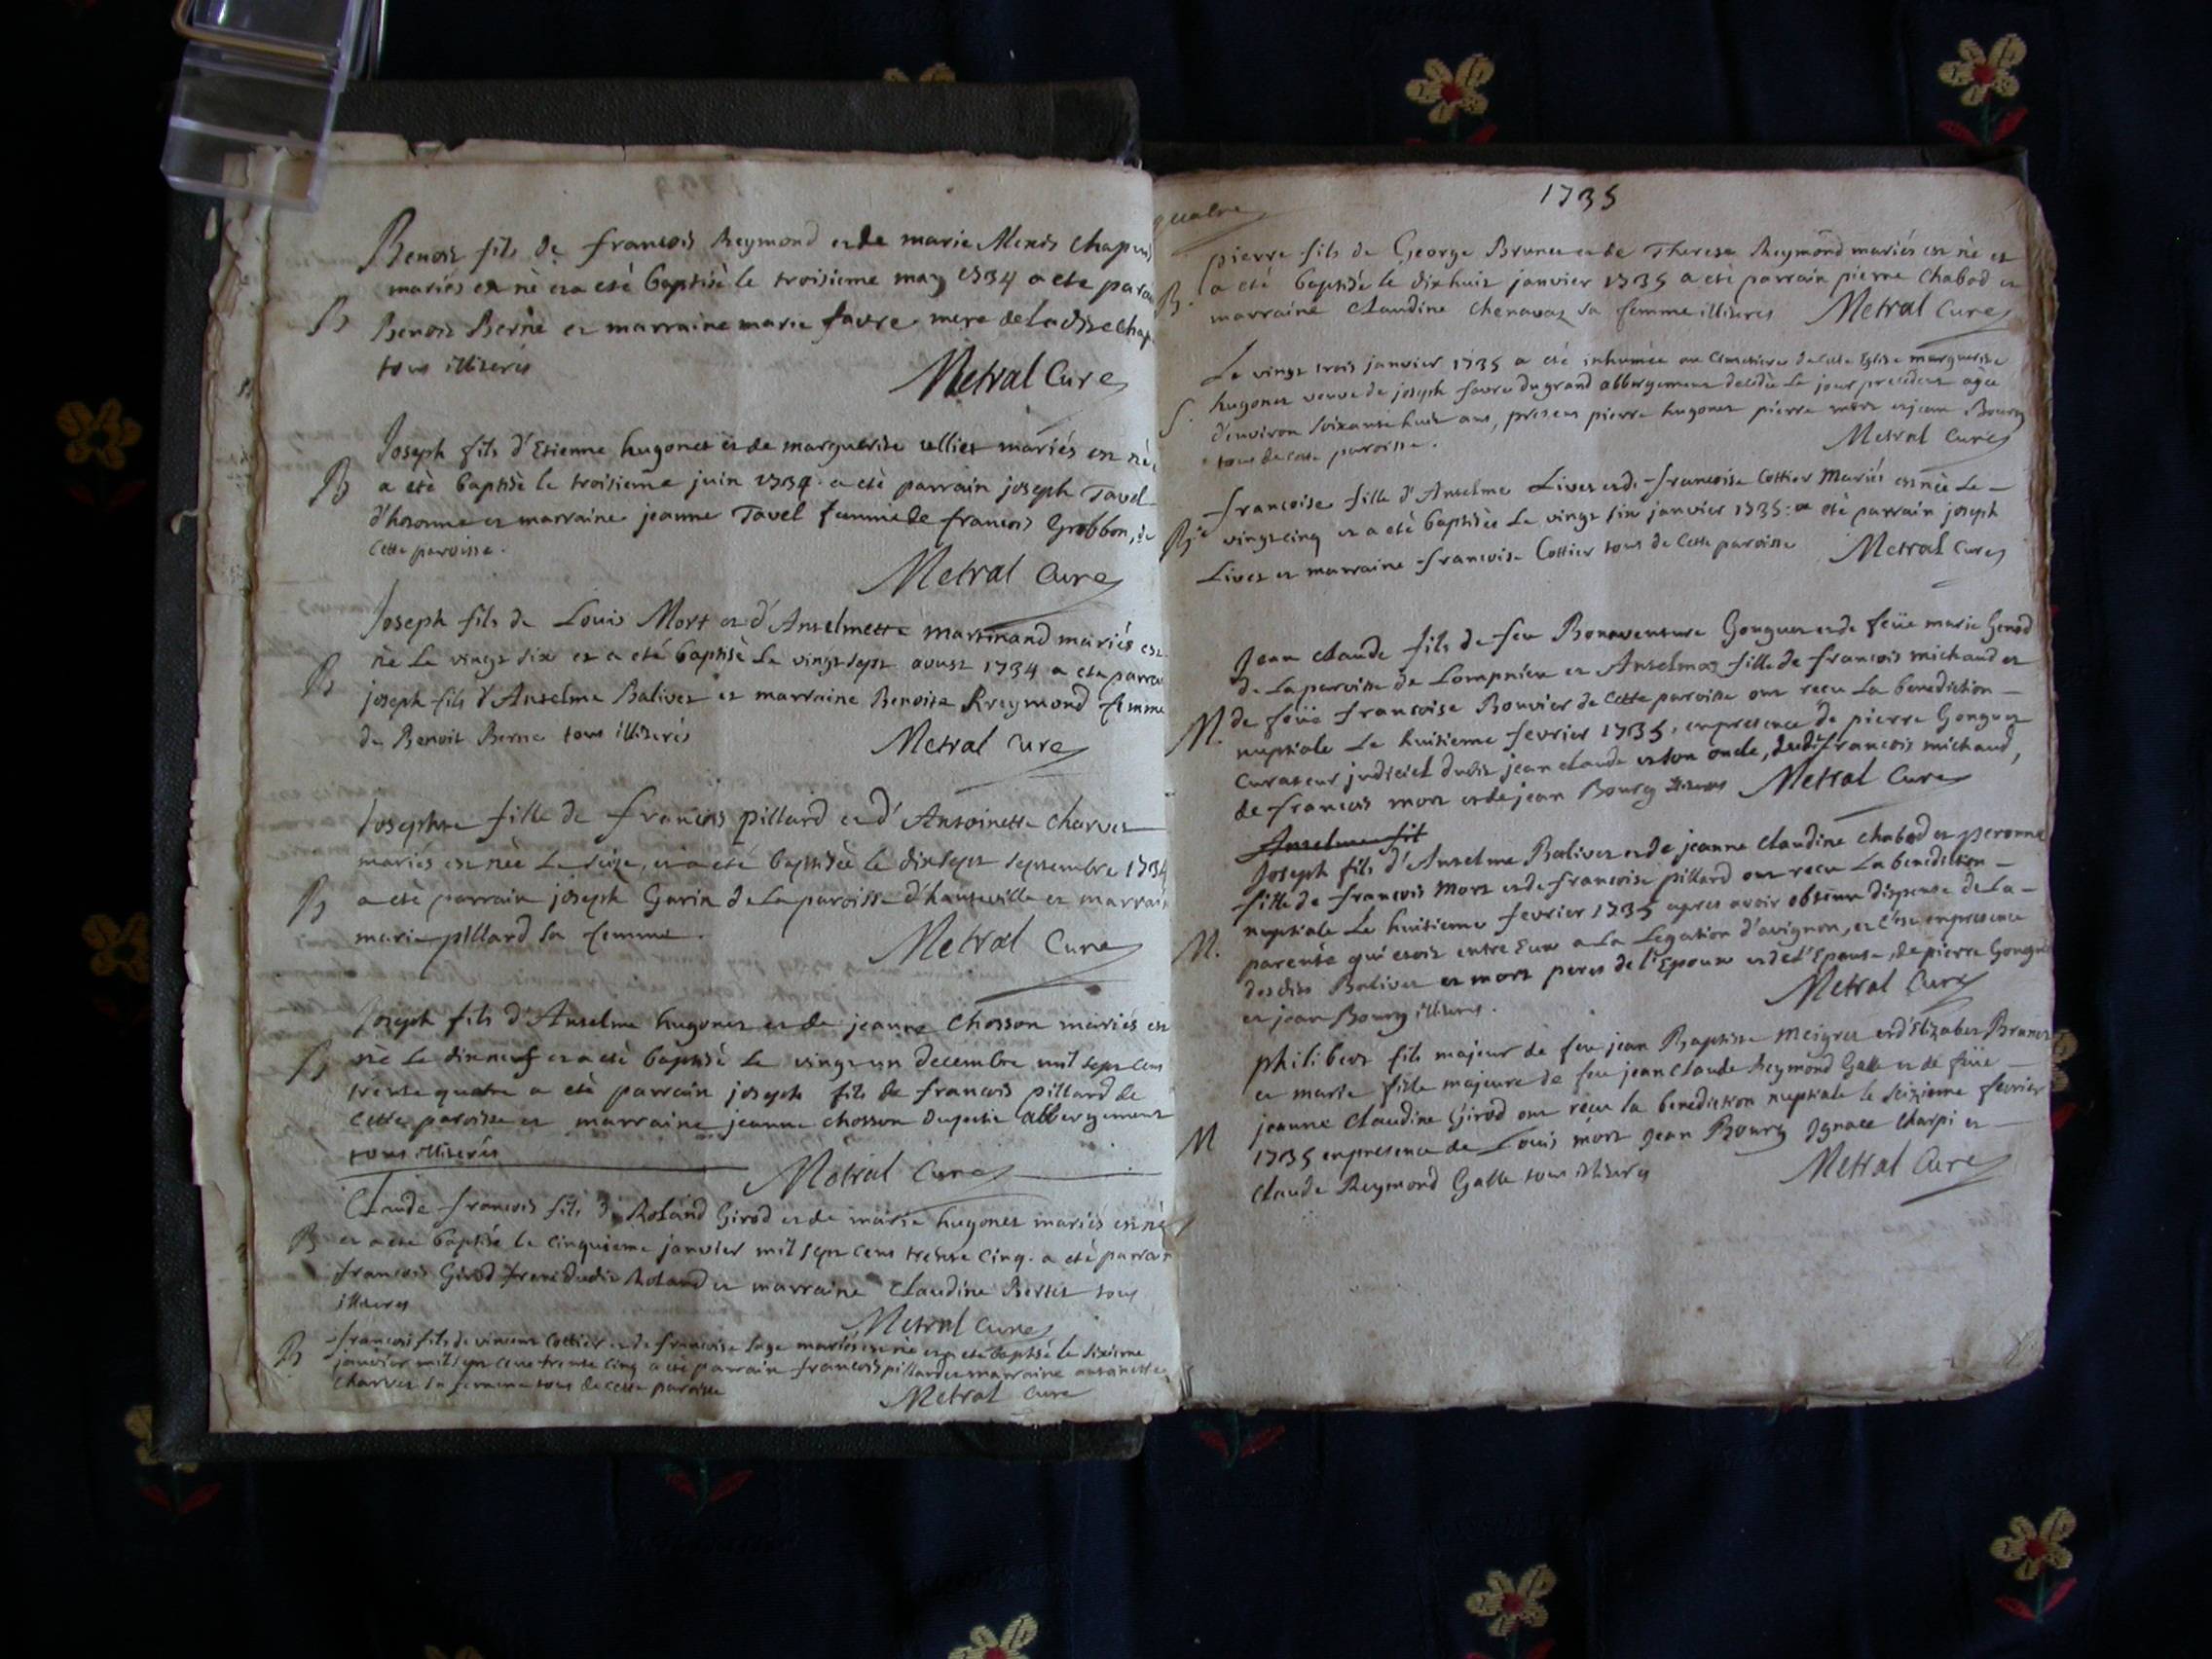 Benoit fils de francois Reymond et de marie Alexis Chapuis
mariés est nè et a etè baptisè le troisieme may 1734 a ete parain
B Benoit Berne et marraine marie favre mere de Ladite Chap
tous illiterés
Metral Cure
Joseph fils d'Etienne hugonet et de marguerite mariés est nè
B a etè baptisè le troisieme juin 1734 a etè parrain joseph Tavel
et marraine jeanne Tavel femme de francois Grobbon, de
Cette paroisse.
Metral Cure
Joseph fils de Louis Mort et d'Anselmette martinand mariés est
B nè Le vingt six et a etè baptisè Le vingt sept aoust 1734 a ete parra
joseph fils d'Anselme Balivet et marraine Benoite Rreymond femme
de Benoit Berne tous illiterés
Metral Cure
Josephte fille de francois pillard et d'Antoinette Charvet
mariés est nèe Le seize, et a etè baptisèe le dixsept septembre 1734
B a etè parrain joseph Garin de La paroisse d'hauteville et marrain
marie pillard sa femme.
Metral Cure
Joseph fils d'Anselme hugonet et de jeanne Chosson mariés est
B nè Le dixneuf et a etè baptisè Le vingt un decembre mil sept cens
trente quatre a etè parrain joseph fils de francois pillard de
Cette paroisse et marraine jeanne chosson du petit abbergement
tous illiterés
Metral Cure
Claude francois fils de Roland Girod et de marie hugonet mariés est nè
B et a ete baptisé le cinquieme janvier mil sept cens trente cinq. a etè parrain
francois Girod frere dudit Roland et marraine Claudine Bertet tous
illiteres
Metral Cure
francois fils de vincent Cottier et de francoise mariés est nè et a ete baptisé le sixieme
B janvier mil sept cens trente cinq a etè parrain francois pillard et marraine antoinette
Charvet sa femme tous de cette paroisse
Metral Cure
quatre
1735
pierre fils de George Brunet et de Therese Reymond mariés est nè et
B. a etè baptisé le dixhuit janvier 1735 a etè parrain pierre Chabod et
marraine Claudine Chenavaz sa femme illiteres Metral Cure
Le vingt trois janvier 1735 a eté inhumée au Cimetiere de cette Eglise marguerite
hugonet veuve de joseph favre du grand abbergement decedèe Le jour precedent agèe
S. d'environ soixante huit ans, presens pierre hugonet pierre mort et jean Bourg
tous de cette paroisse.
Metral Cure
francoise fille d'Anselme Livet et de francoise Cottier Mariés est nèe Le
B. vingt cinq et a etè baptisèe Le vingt six janvier 1735. a etè parrain joseph
Livet et marraine francoise Cottier tous de Cette paroisse Metral Cure
Jean claude fils de feu Bonaventure Gonguet et de feüe marie Genod
de La paroisse de Lompnieu et Anselmaz fille de francois michaud et
M. de feüe francoise Bouvier de Cette paroisse ont recu La benediction
nuptiale Le huitieme fevrier 1735, en presence de pierre Gonguet
Curateur judiciel dudit jean claude et son oncle, dudit francois michaud,
de francois mort et de jean Bourg illiteres Metral Cure
Anselme fil
Joseph fils d'Anselme Balivet et de jeanne claudine Chabod et peronne
fille de francois Mort et de francoise pillard ont recu La benediction
nuptiale Le huitieme fevrier 1735 apres avoir obtenu dispense de La
M. parenté qui etoit entre Eux a La Legation d'avignon, et c'est en presence
desdits Balivet et mort peres de l'Epoux et de L'Epouse, de pierre Gongue
et jean Bourg illiteres.
Metral Cure
philibert fils majeur de feu jean Baptiste Meigret et d'Elizabet Brunet
et marie fille majeure de feu jean claude Reymond Galle et de feüe
jeanne Claudine Girod ont recu la benediction nuptiale le seizieme fevrier
M 1735 en presence de Louis mort Jean Bourg Ignace Charpi et
Claude Reymond Galle tous illiteres
Metral Cure